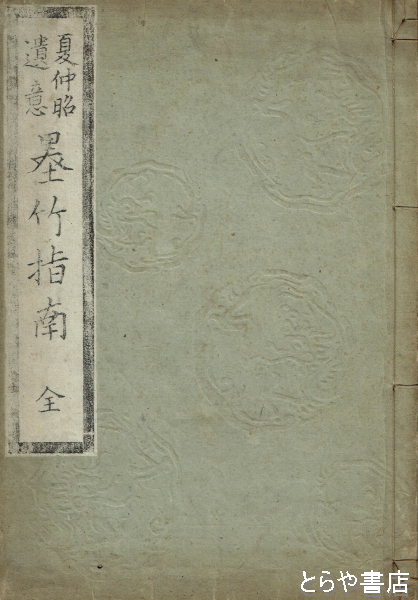 夏仲昭
遺意
墨竹指南
全
とらや書店